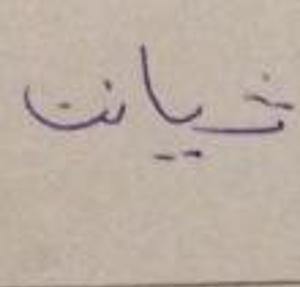 خیانت